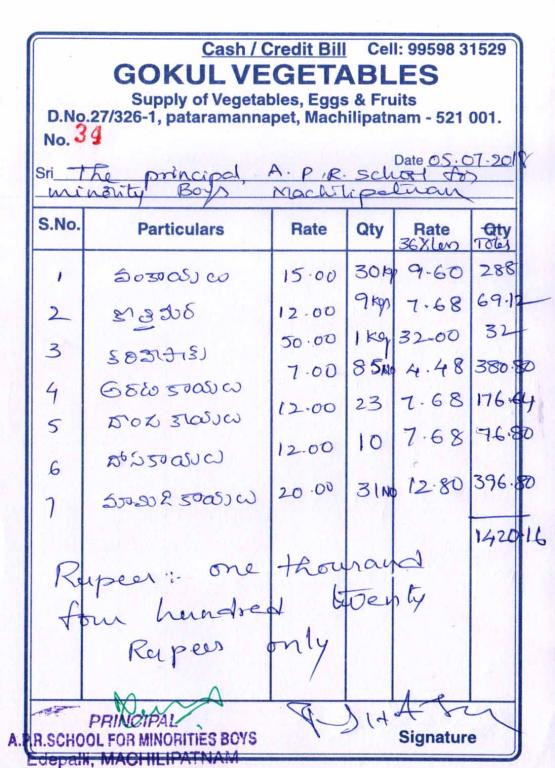 Cash / Credit Bill Cell: 99598 31529
GOKUL VEGETABLES
Supply of Vegetables, Eggs & Fruits
D.No.27/326-1, pataramannapet, Machilipatnam - 521 001.
No. 39
Date 05.07.2018
Sri The principal, A.P.R. school for
minority Boys Machilipatnam
S.No. Particulars Rate Qty Rate 36%less Qty Total
1 వంకాయలు 15.00 30kg 9.60 288
2 కొత్తిమీర 12.00 9kgs 7.68 69.12
3 కరివేపాకు 50.00 1kg 32.00 32
4 అరటికాయలు 7.00 85No 4.48 380.80
5 దొండకాయలు 12.00 23 7.68 176.64
6 దోసకాయలు 12.00 10 7.68 76.80
7 మామిడికాయలు 20.00 31No 12.80 396.80
1420.16
Rupees :- one thousand
four hundred twenty
Rupees only
PRINCIPAL
A.P.R.SCHOOL FOR MINORITIES BOYS
Edepalli, MACHILIPATNAM
Signature